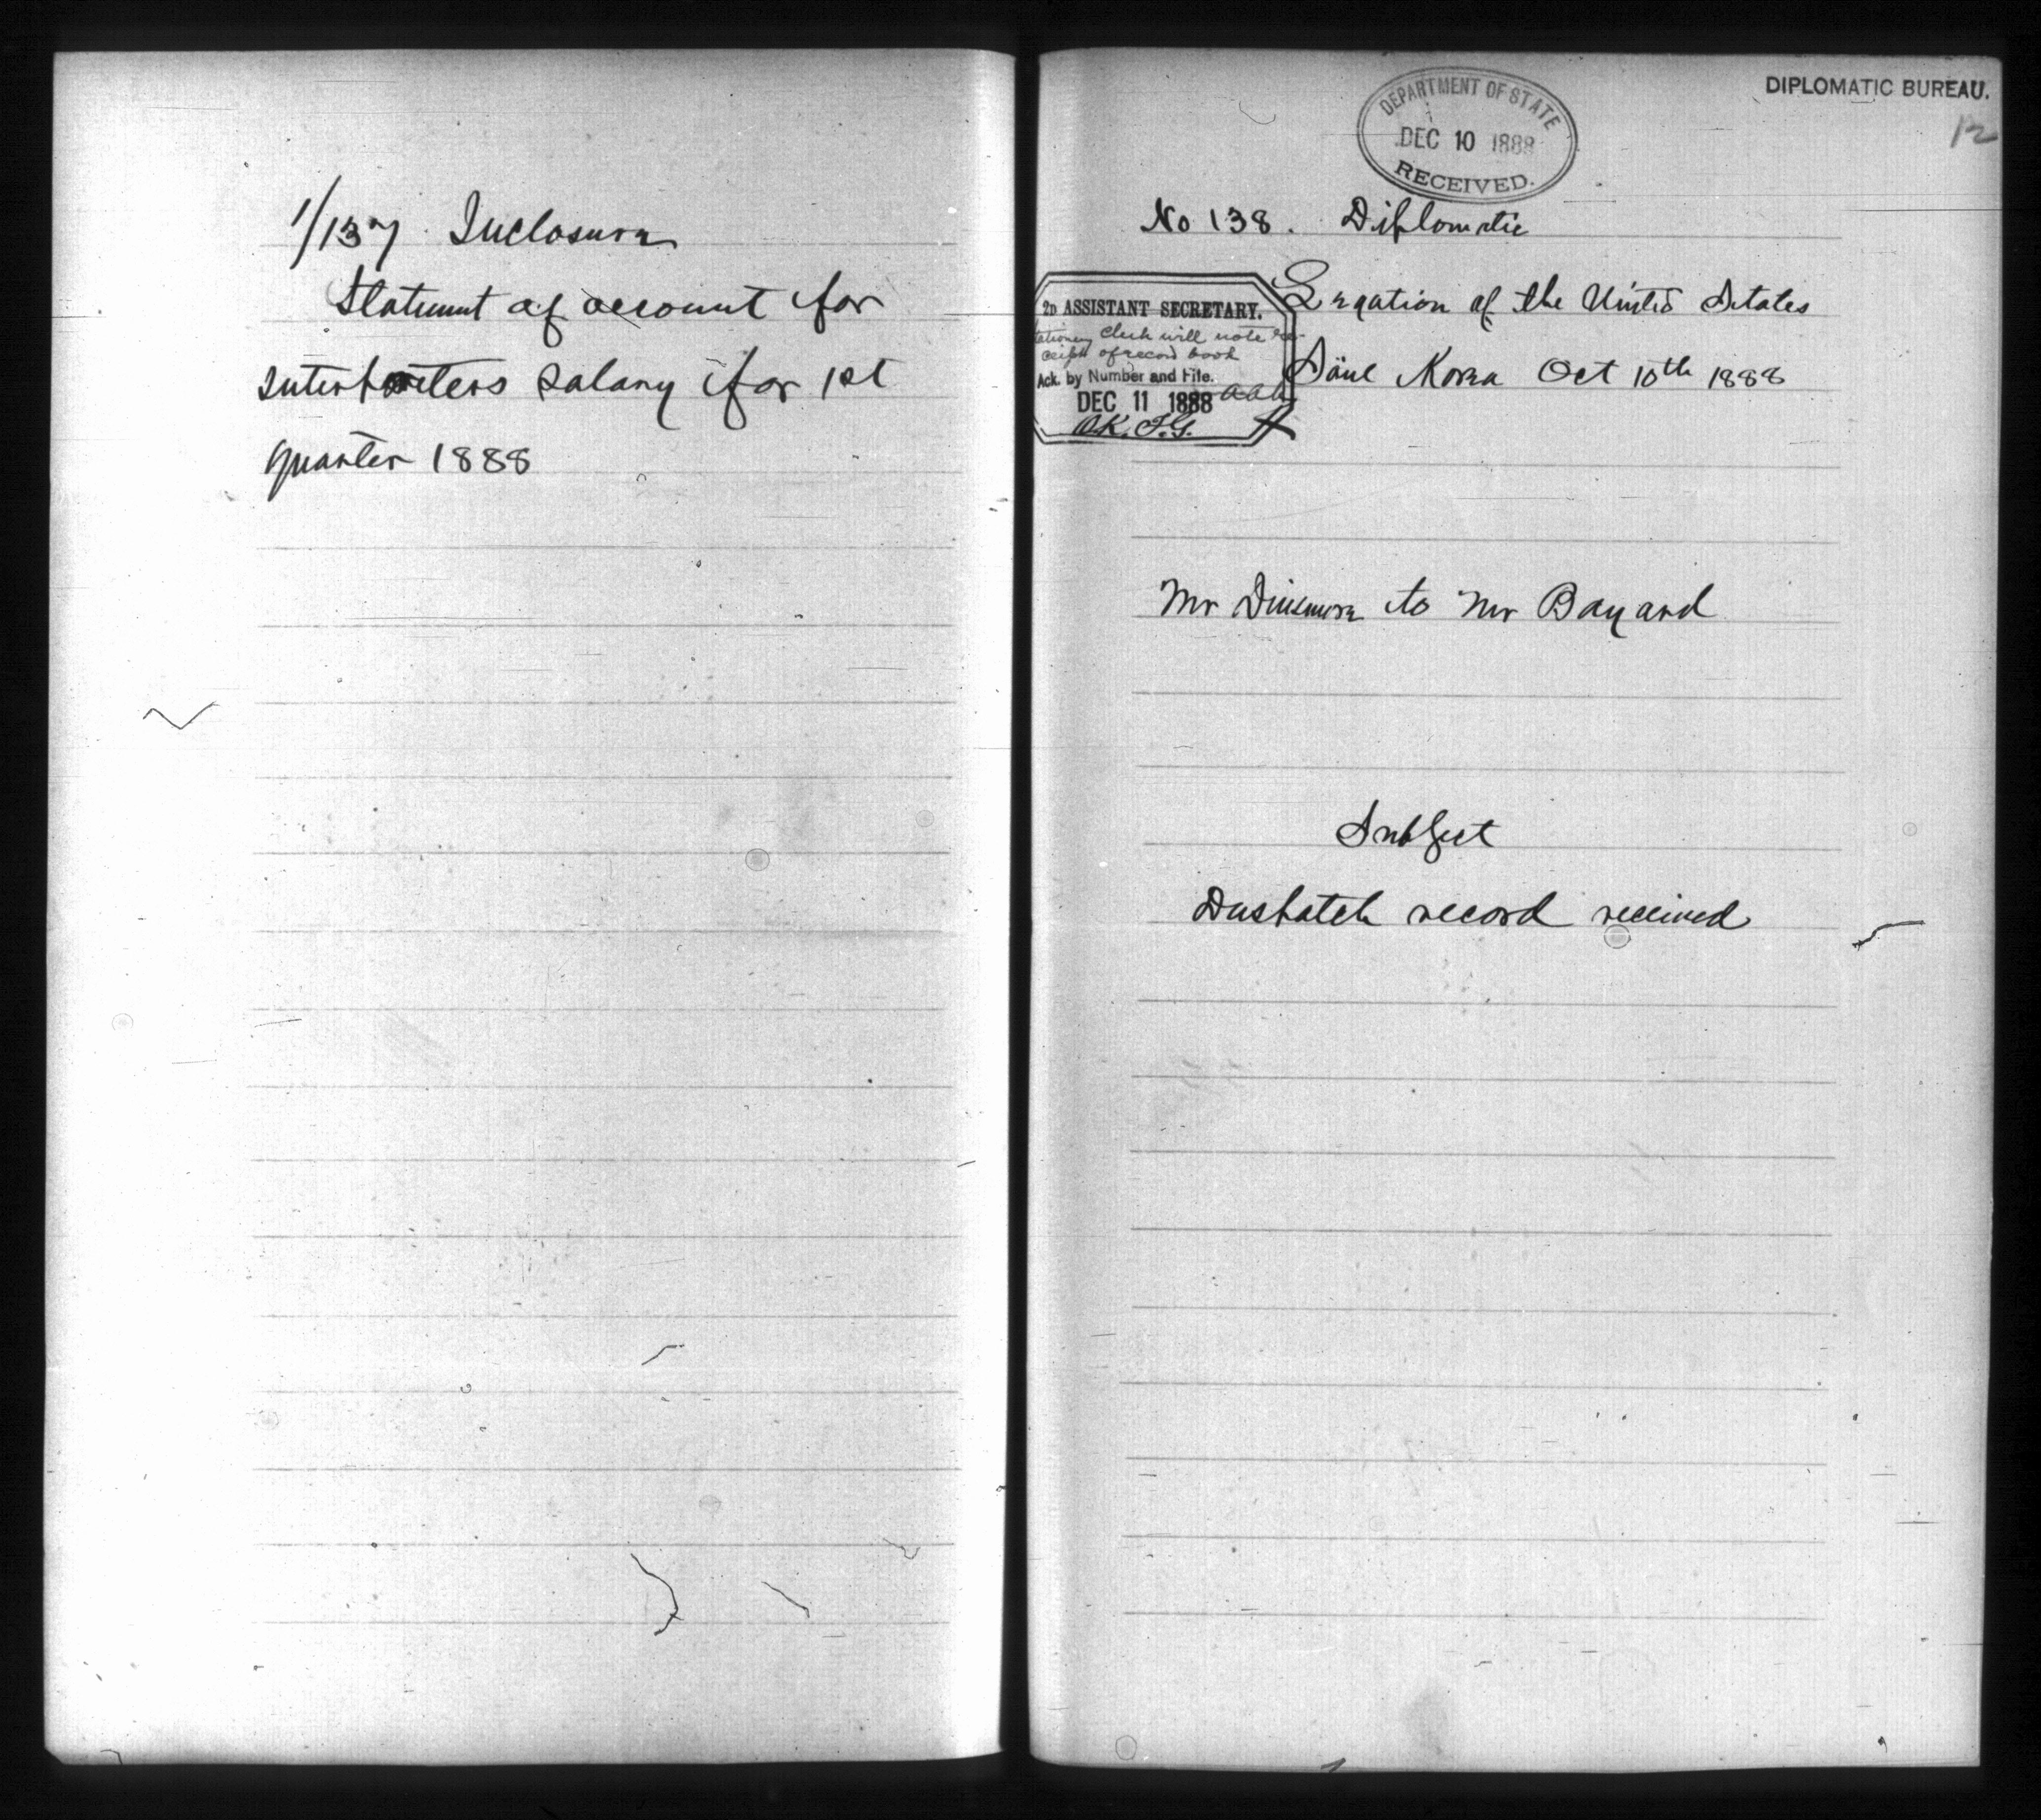 1/137 Inclosure
Statement of account for
interpreters salary for 1st
quarter 1888
DIPLOMATIC BUREAU.
DEPARTMENT OF STATE
DEC 10 1888
RECEIVED.
No 138. Diplomatic
Legation of the United States
Söul Korea Oct 10th 1888
2D ASSISTANT SECRETARY.
Stationery Clerk will note re-
ceipt of record book
Ack. by Number and File.
DEC 11 1888 aaa
O.K. J.G.
Mr Dinsmore to Mr Bayard
Subject
Despatch record received